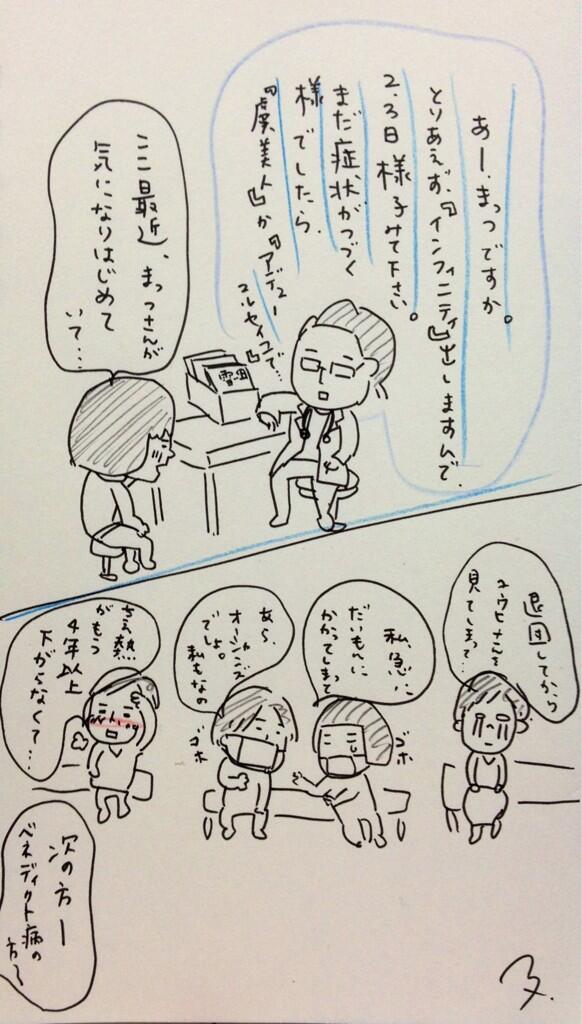 あー、まっつですか。
とりあえず、『インフィニティ』出しますんで、
2、3日様子みて下さい。
まだ症状がつづく
様でしたら、
『虞美人』か『アデュー
マルセイユ』で…
ここ最近、まっつさんが
気になりはじめて
いて…
雪組
退団してから
ユウヒさんを
見てしまって…
私、急に
だいもんに
かかってしまって
あら、
オーシャンズ
でしょ。
私もなの
ゴホ
ゴホ
ちえ熱
がもう
4年以上
下がらなくて…
次の方ー
ベネディクト病の
方〜